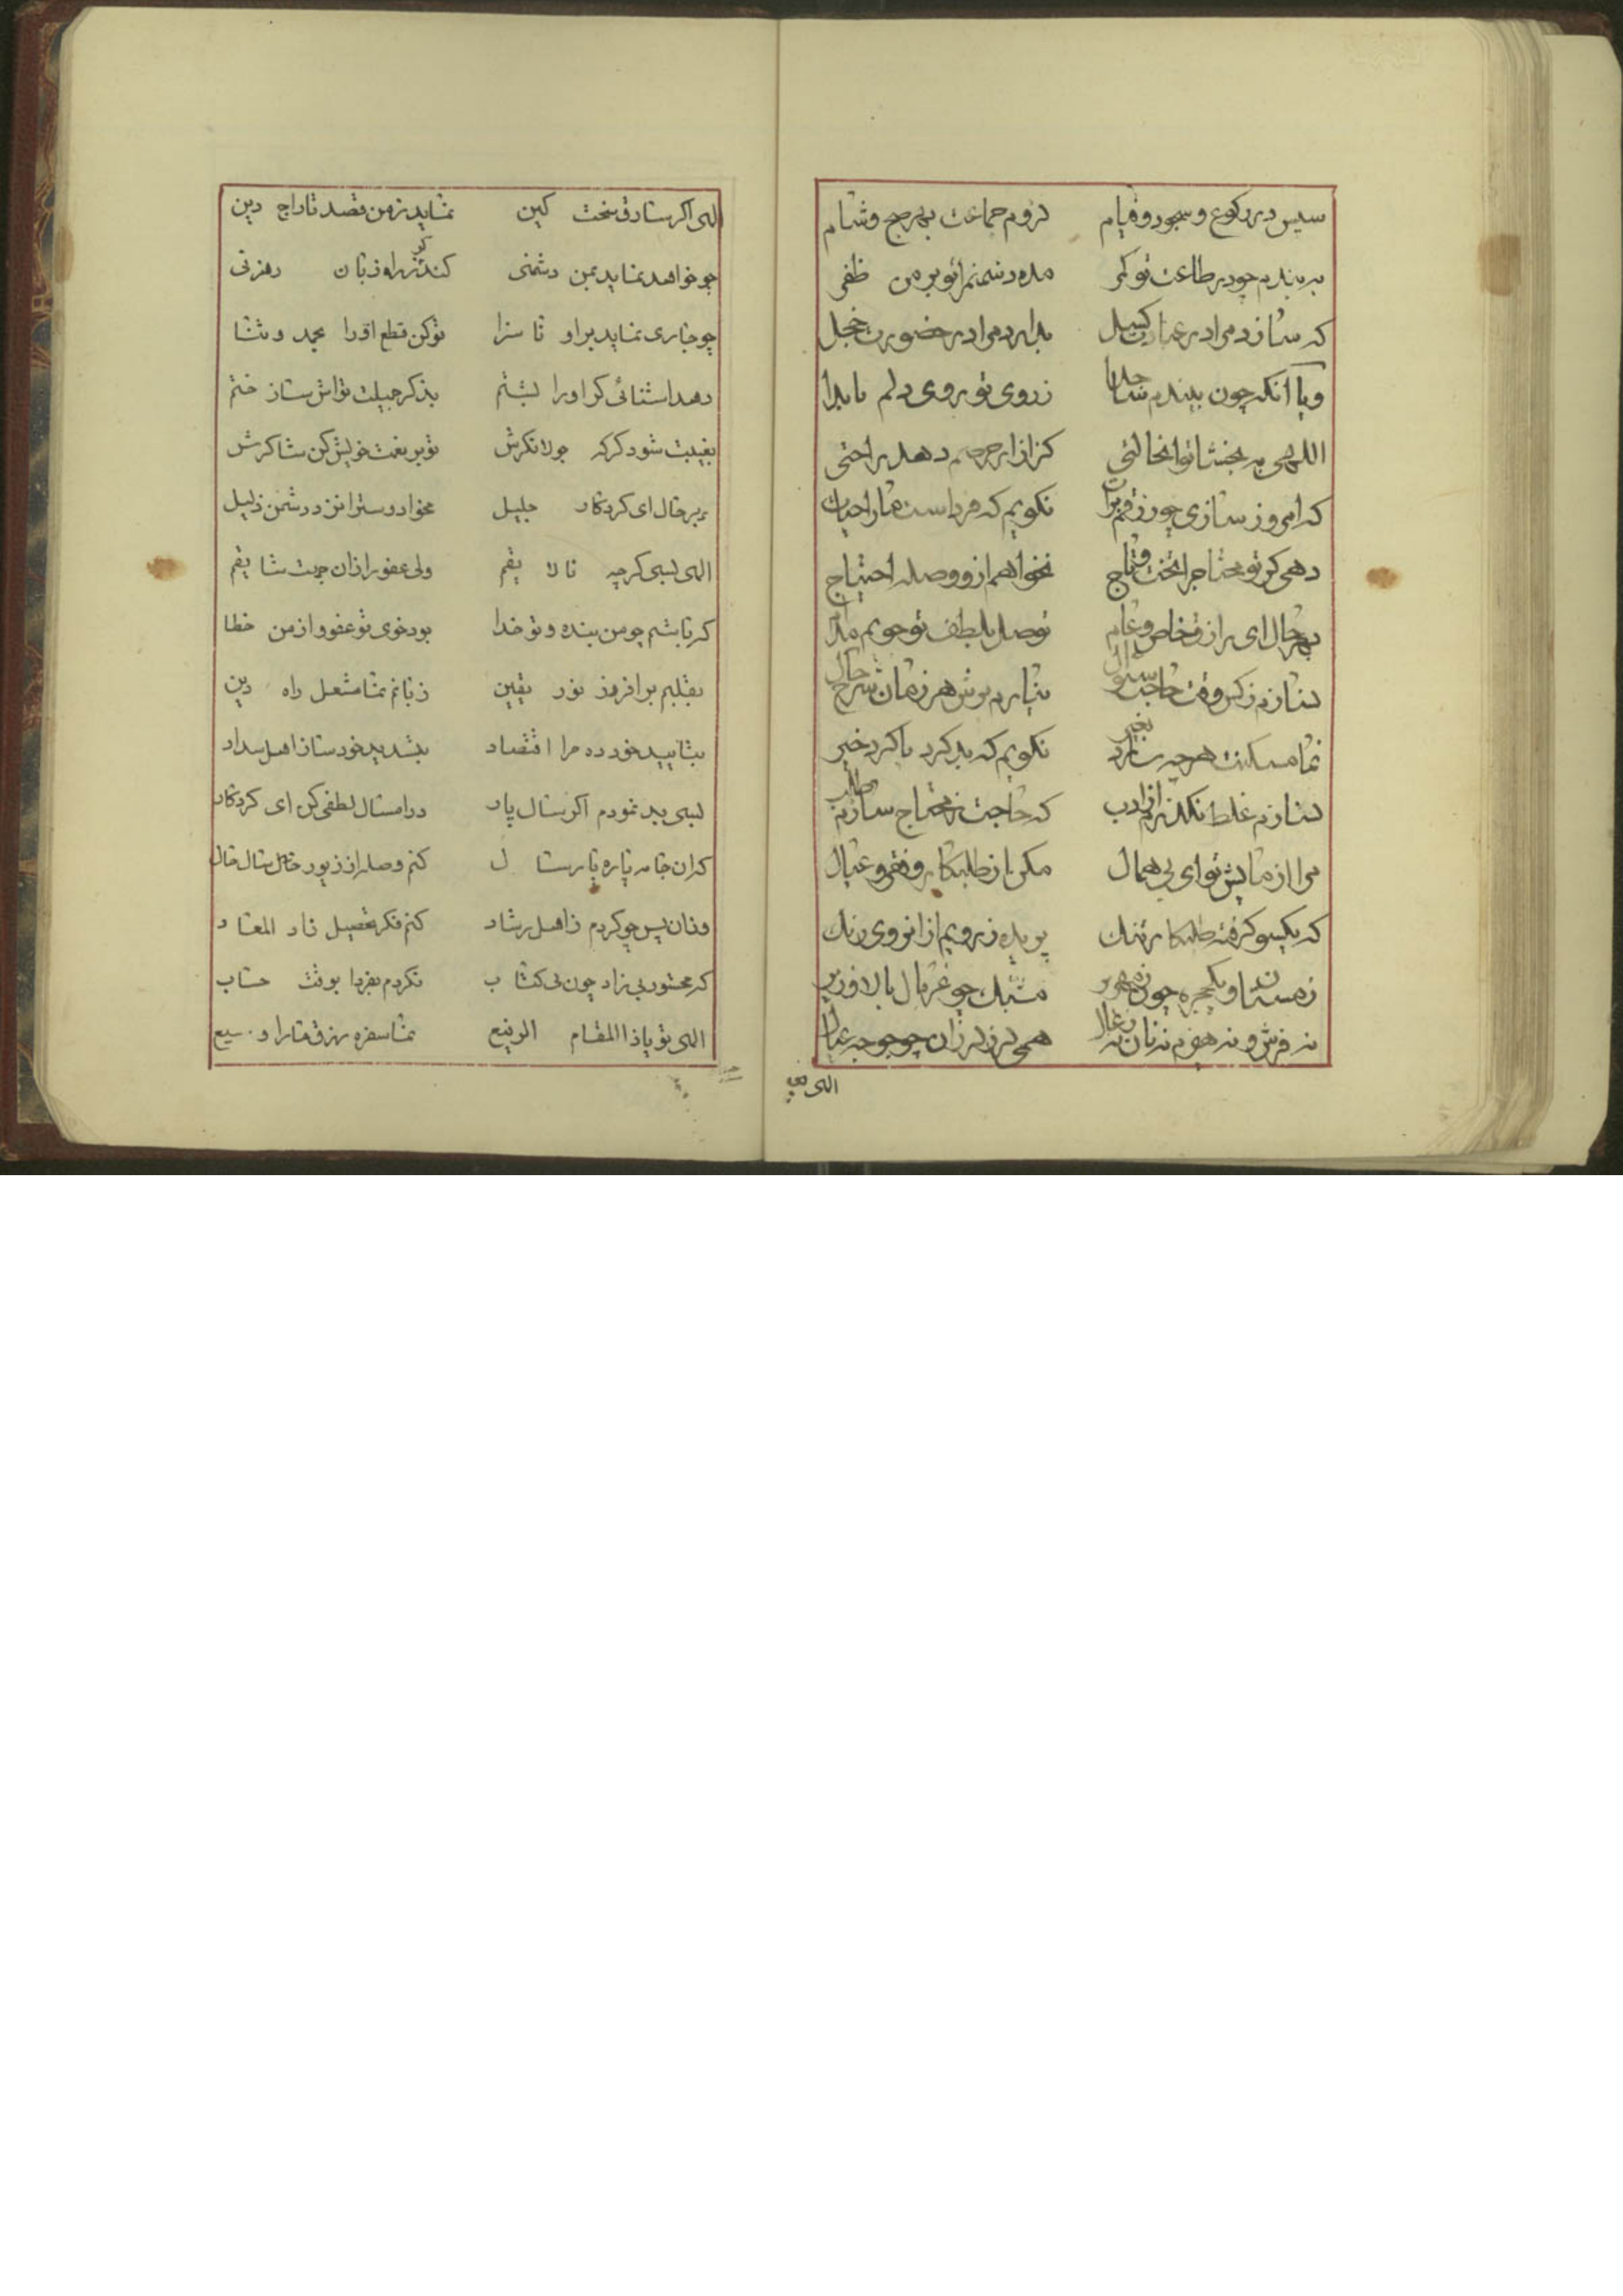 سپس در رکوع و سجود و قیام لزوم جماعت بهر صبح و شام
به بندم چو در طاعت تو کمر مده دشمنم را تو بر من ظفر
که سازد مرا در عبادت کسل بدارد مرا در حضورت خجل
و یا آنکه چون بیندم ز روی تو بر روی دلم
اللهی به بخشا تو آنحالتی کز آزار جرمم دهد راحتی
که امروز سازی چو رزقم برات نگویم که فرداست ما را حیات
دهی گر تو محتاج را تخت و تاج نخواهم ازو وصله احتیاج
بهر حال ای رازق خاص و عام توصل بلطف تو جویم مدام
نسازم ز کس وقت حاجت سئوال نیارم بوش هر زمان شرح حال
نگویم که بد کرد یا کرد خیر
نسازم غلط نگذرم از ادب که حاجت ز محتاج سازم طلب
مرا از مایش تو ای بی همال مکن از طلبکار و فقر و عیال
که یکسو گرفته طلبکار تنگ پریده ز رویم از آنروی رنگ
زمستان و یکحجره چون زمهریر مشبک چو غربال بالا و زیر
نه فرش و نه هیزم نه نان نه زغال همی لرز لرزان چو جوجه عیال
الهی بسی
الهی اگر سارق سخت کین نماید ز من قصد تاراج دین
چو خواهد نماید بمن دشمنی کند گر ز راه زبان رهزنی
چو جاری نماید بر او ناسزا تو کن قطع او را بحمد و ثنا
دهد استنائی گر او را بشتم بذکر جمیلت تو اش ساز ختم
بغیبت شود گر که جولانگرش تو بر نعمت خویش کن شاکرش
بهر حال ای کردگار جلیل مخواه دوستر از من دشمن ذلیل
الهی بسی گرچه نالایقم ولی عفو را زان جهت شایقم
که باشم چو من بنده و تو خدا بود خوی تو عفو و از من خطا
بقلبم برافروز نور یقین زبانم نما مشعل راه دین
بتأیید خود ده مرا اقتصاد بتسدید خود ساز اهل سداد
بسی بد نمودم اگر سال پار در امسال لطفی کن ای کردگار
که آن جامه پاره پارسال کنم وصله از زیور حال سال
وزان پس چو گردم ز اهل رشاد کنم فکر تحصیل زاد المعاد
که محشور بی زاد چون بی کتاب نگردم بفردا بوقت حساب
الهی تو یا ذا المقام الرفیع نما سفره رزق ما را وسیع